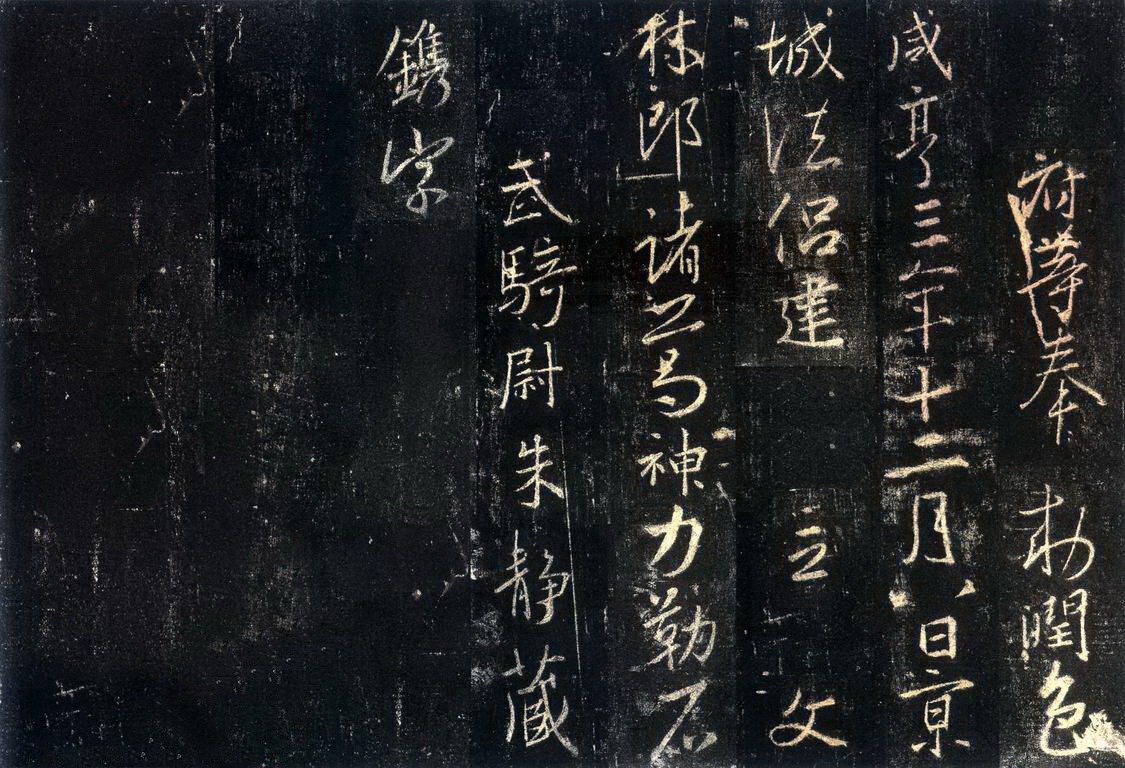 府等奉 勑潤色
咸亨三年十二月八日京
城法侶建 立 文
林郎諸葛神力勒石
武騎尉朱静藏
鐫字